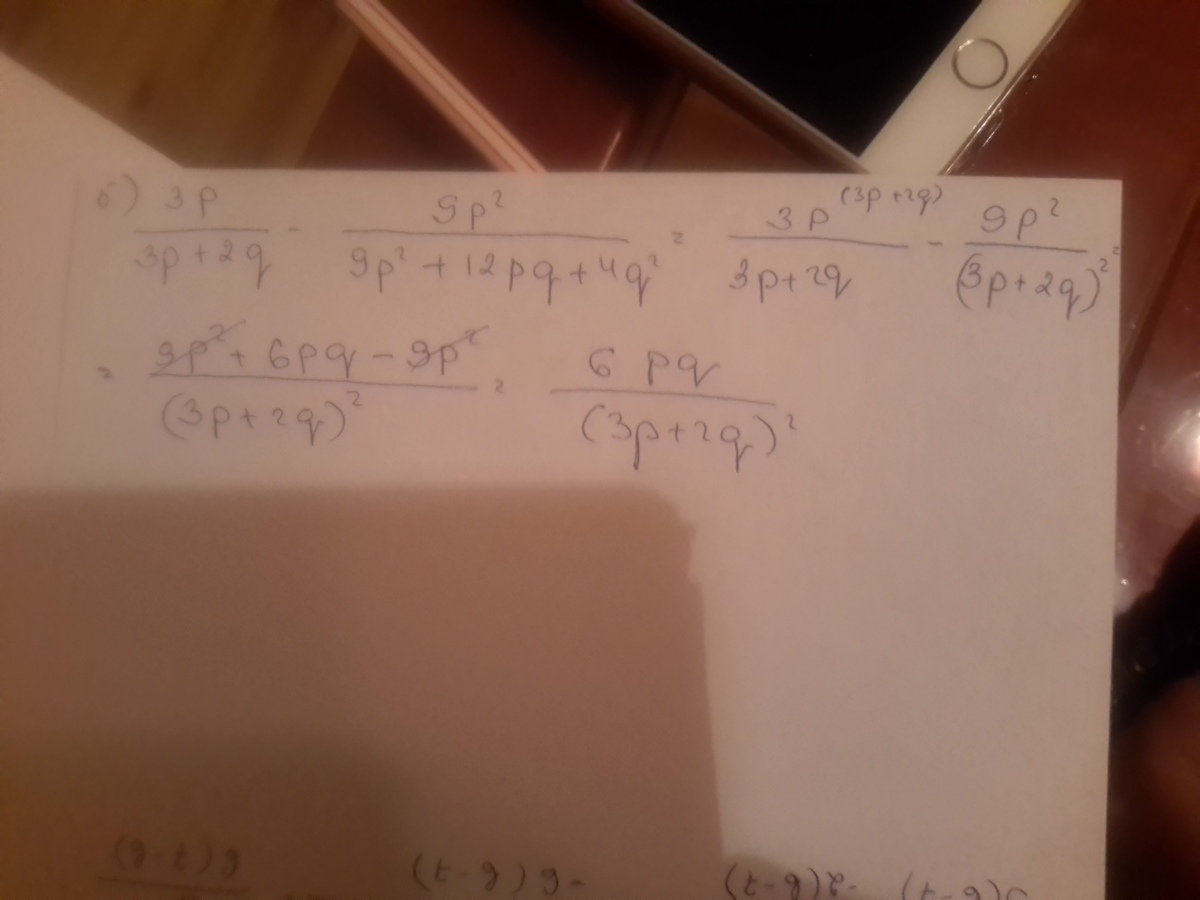 б) 3p/(3p+2q) - 9p²/(9p²+12pq+4q²) = 3p^(3p+2q)/(3p+2q) - 9p²/(3p+2q)² =
= (9p²+6pq-9p²)/(3p+2q)² = 6pq/(3p+2q)²